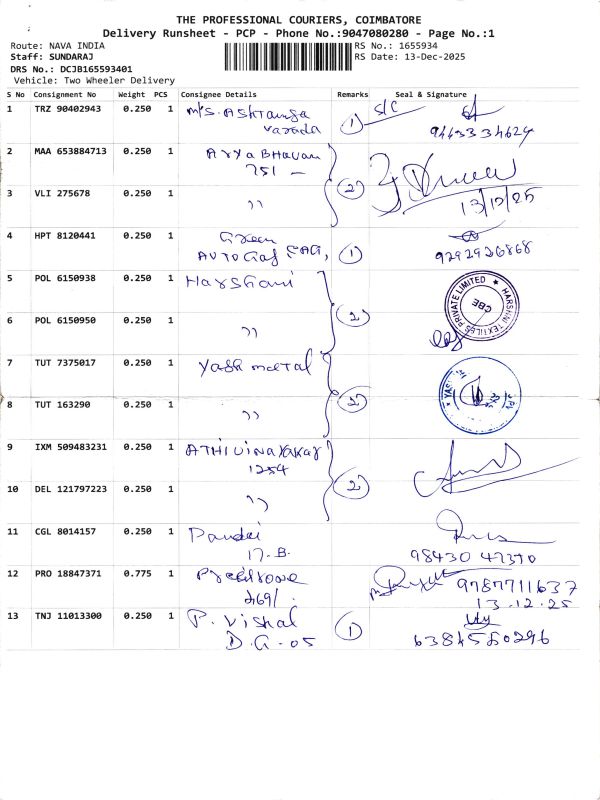 THE PROFESSIONAL COURIERS, COIMBATORE
Delivery Runsheet - PCP - Phone No.:9047080280 - Page No.:1
Route: NAVA INDIA
RS No.: 1655934
Staff: SUNDARAJ
RS Date: 13-Dec-2025
DRS No.: DCJB165593401
Vehicle: Two Wheeler Delivery
S No Consignment No Weight PCS Consignee Details Remarks Seal & Signature
1 TRZ 90402943 0.250 1 M/S. Ashtanga 1 S/C
Varada 9443334624
2 MAA 653884713 0.250 1 Arya Bhavan
751 - 2
3 VLI 275678 0.250 1 ,, 13/12/25
4 HPT 8120441 0.250 1 Green
AUTO 1 9292926868
5 POL 6150938 0.250 1 Harshani
2 HARSHNI TEXTILES PRIVATE LIMITED CBE
6 POL 6150950 0.250 1 ,,
7 TUT 7375017 0.250 1 Yash metal
2
8 TUT 163290 0.250 1 ,,
9 IXM 509483231 0.250 1 ATHIVINAYAKAR
1254 2
10 DEL 121797223 0.250 1 ,,
11 CGL 8014157 0.250 1 Pandai
17.B. 98430 47370
12 PRO 18847371 0.775 1 9787711637
13.12.25
13 TNJ 11013300 0.250 1 P. Vishal 1
D.G-05 6384580296